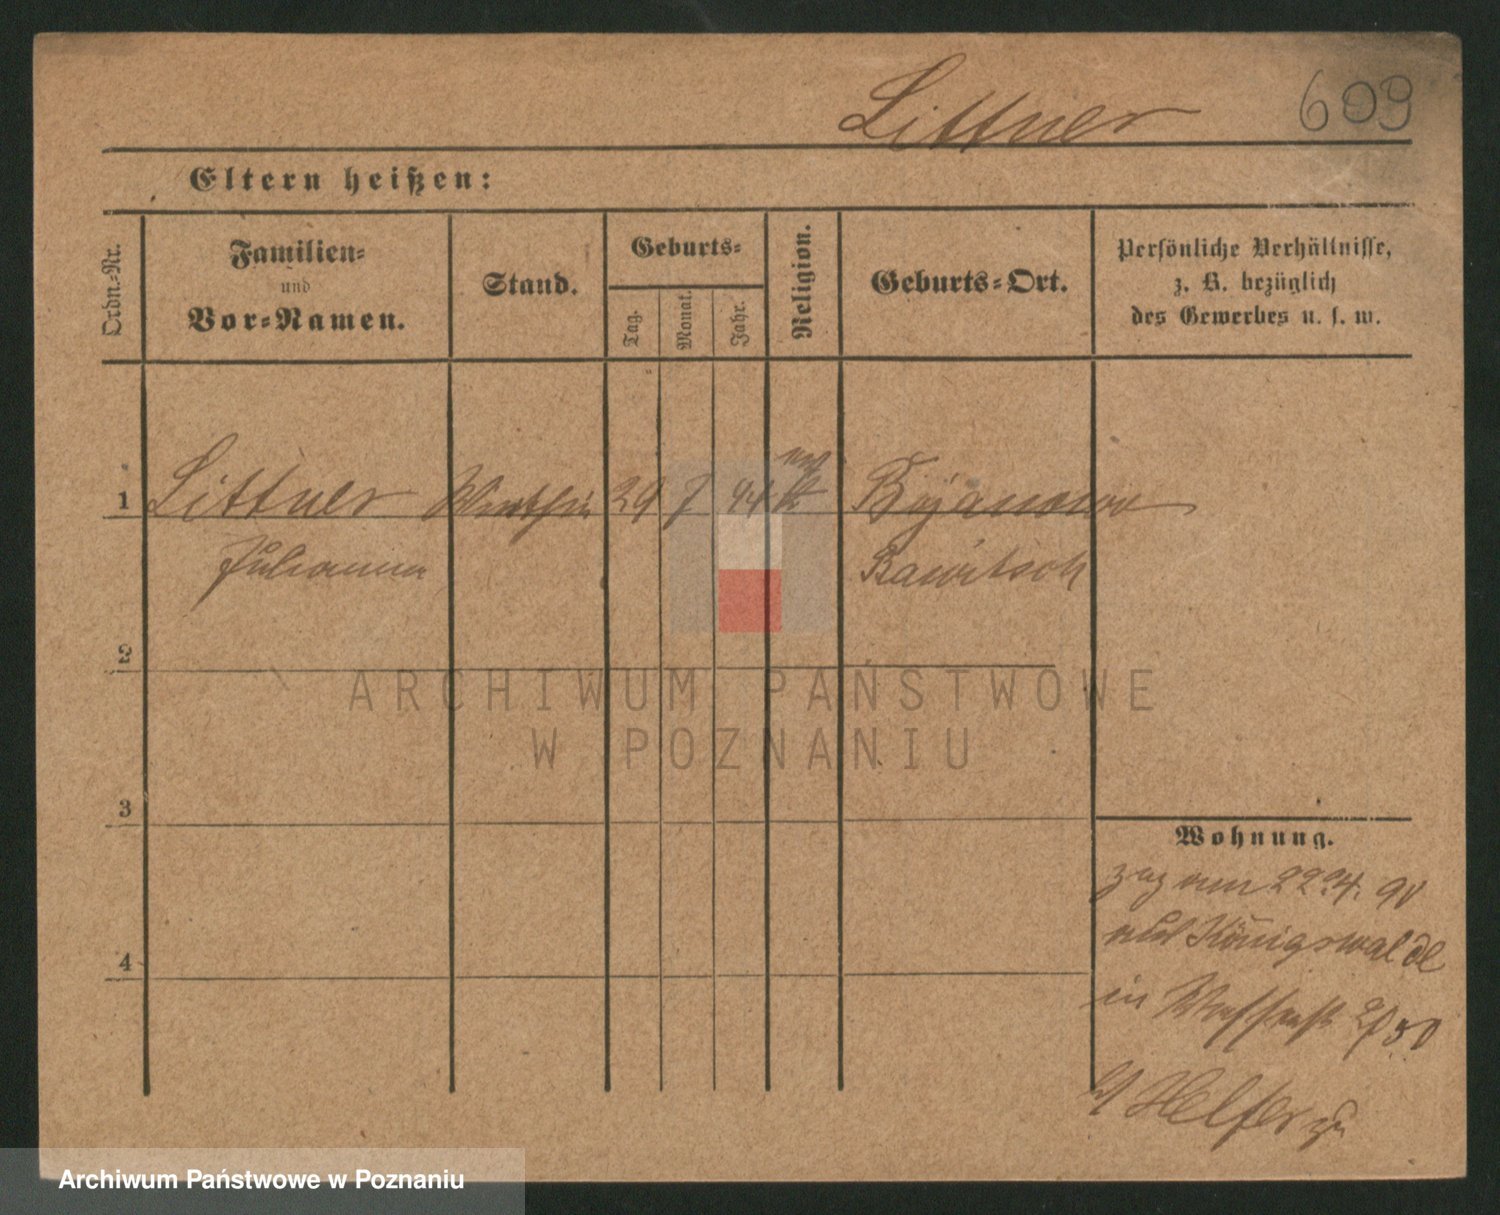 Littner 609
Eltern heißen:
Ordn.-Nr.
Familien-
und
Vor-Namen.
Stand.
Geburts-
Tag.
Monat.
Jahr.
Religion.
Geburts-Ort.
Persönliche Verhältnisse,
z. B. bezüglich
des Gewerbes u. s. w.
1 Littner Wirthin 29 7 44 Bojanowo
Julianna Rawitsch
2
3
4
Wohnung.
zug am 22 4. 90
auf Königswalde
in
Helfer
ARCHIWUM PAŃSTWOWE
W POZNANIU
Archiwum Państwowe w Poznaniu